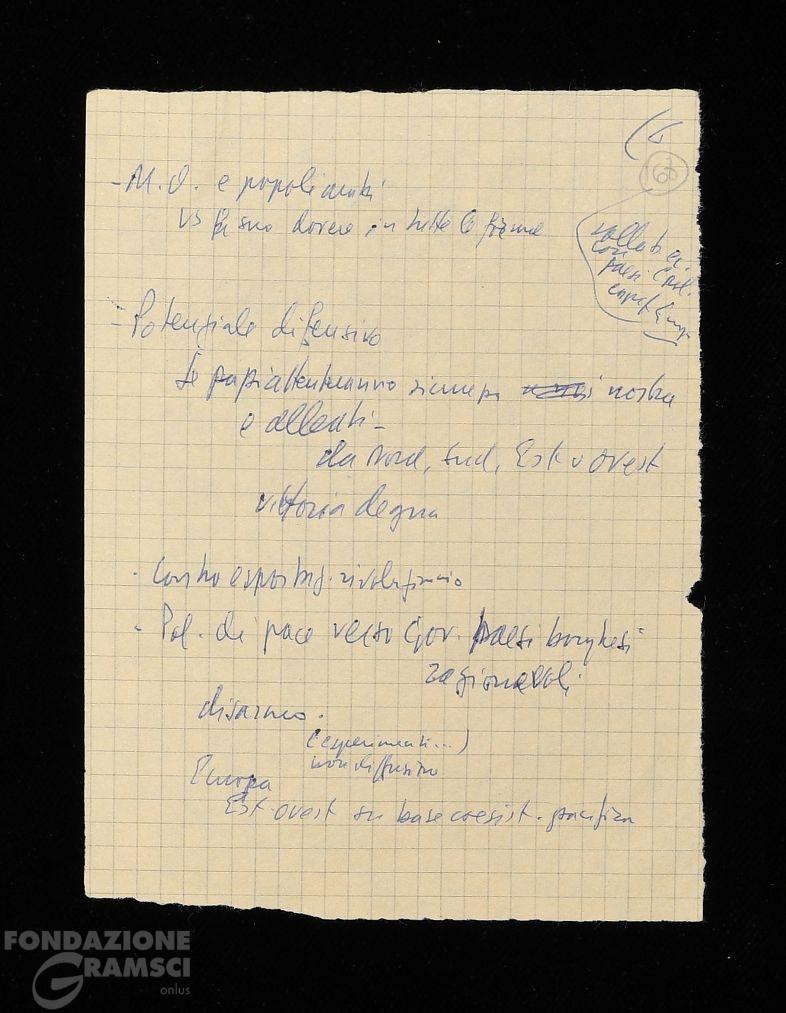 - M.O. e popoli arabi
US fa suo dovere in tutte le forme
collab. ec.
con
paesi
- Potenziale difensivo
Se attenteranno sicurezza nostra
e alleati -
da Nord, Sud, Est o Ovest
vittoria degna
- Contro esportaz. rivoluzione
- Pol. di pace verso Gov. paesi borghesi
ragionevoli
disarmo.
(esperimenti...)
non diffusione
Europa
Est-ovest su base coesist. pacifica
FONDAZIONE
GRAMSCI
onlus